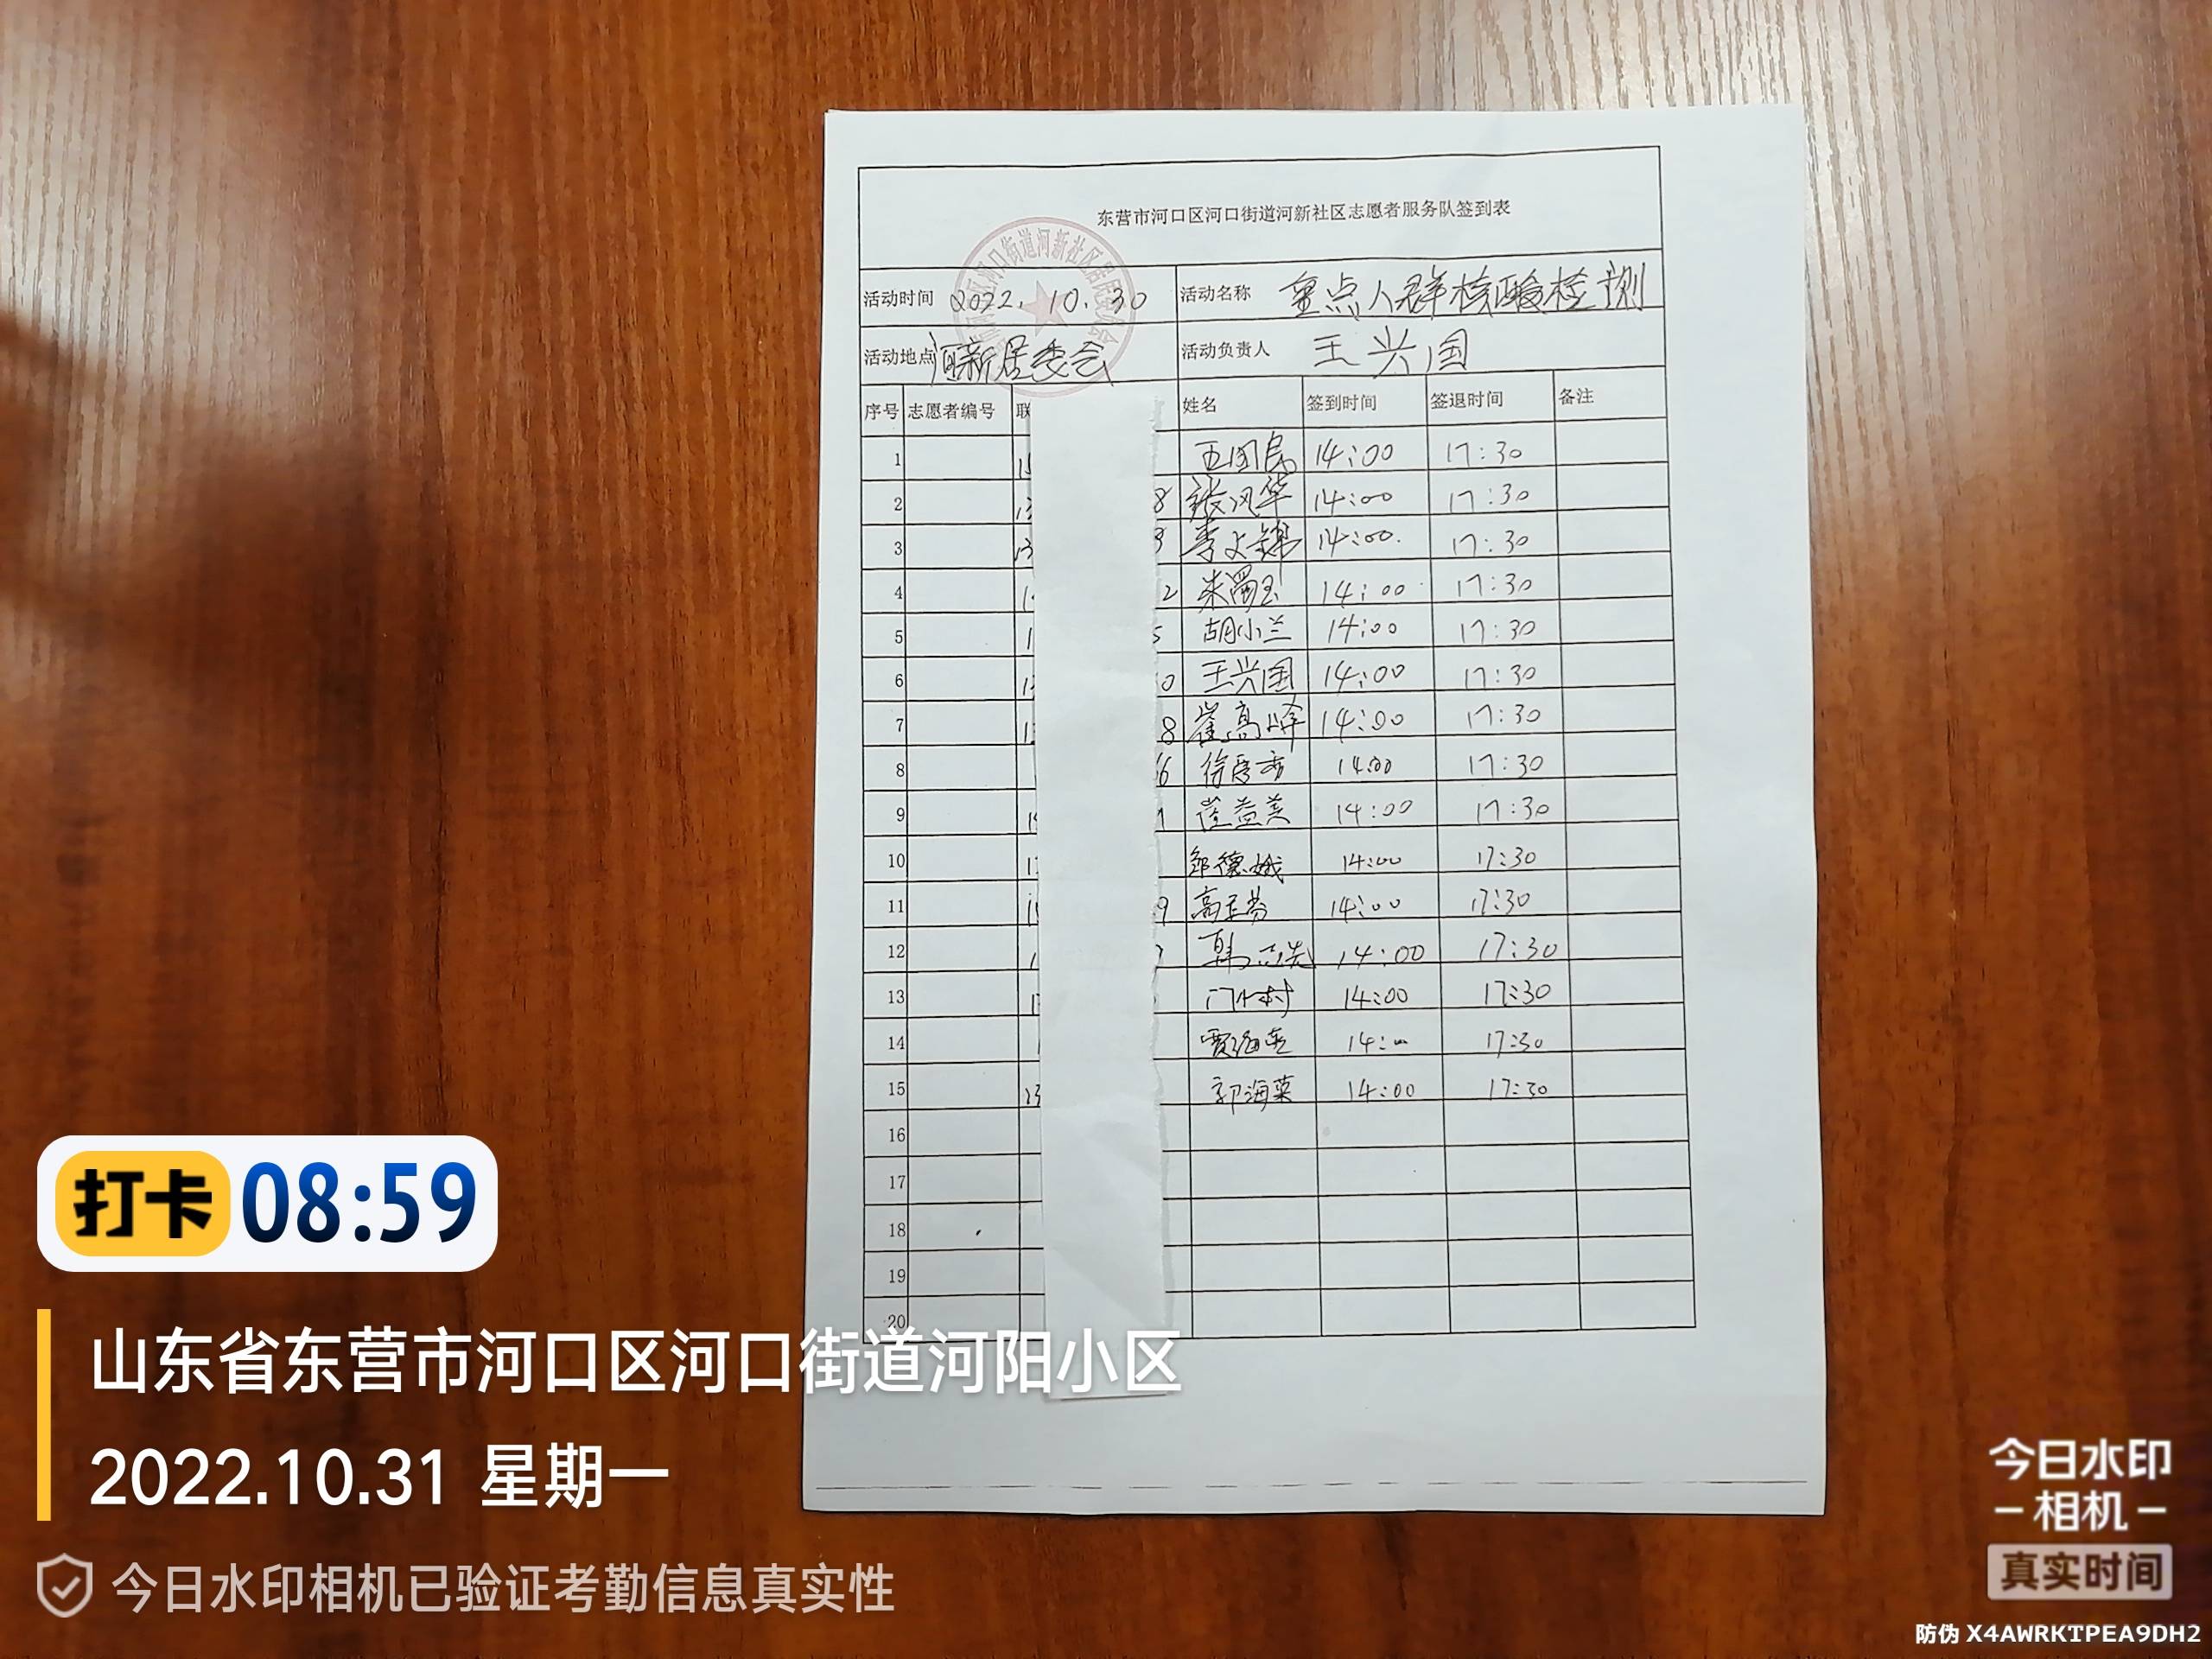 东营市河口区河口街道河新社区志愿者服务队签到表
活动时间 2022.10.30 活动名称 重点人群核酸检测
活动地点 河新居委会 活动负责人 王兴国
序号 志愿者编号 联 姓名 签到时间 签退时间 备注
1 15 王国民 14:00 17:30
2 13 8 张风华 14:00 17:30
3 13 14:00. 17:30
4 1 2 14:00 17:30
5 1 5 胡小兰 14:00 17:30
6 0 王兴国 14:00 17:30
7 8 崔高峰 14:00 17:30
8 6 14:00 17:30
9 14:00 17:30
10 14:00 17:30
11 9 14:00 17:30
12 14:00 17:30
13 14:00 17:30
14 17:30
15 13 郭海英 14:00 17:30
16
17
18
19
20
打卡 08:59
山东省东营市河口区河口街道河阳小区
2022.10.31 星期一
今日水印相机已验证考勤信息真实性
今日水印
相机
真实时间
防伪 X4AWRKTPEA9DH2